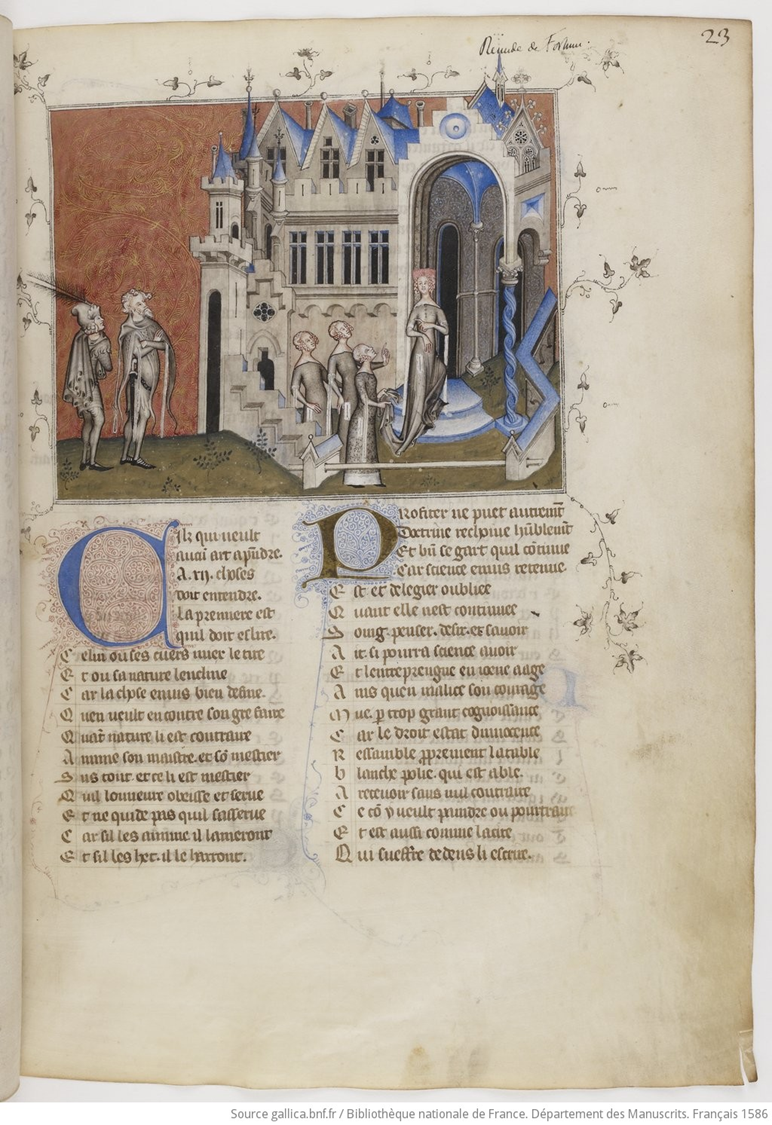 Remede de Fortune.
23
Cilz qui veult
aucun art aprẽdre.
A .xij. choses
doit entendre.
La premiere est
quil doit eslire.
Celui ou ses cuers miex le tire
Et ou sa nature lencline
Car la chose enuis bien define.
Quen veult encontre son gre faire
Quant nature li est contraire
Aimme son maistre. et sõ mestier
Sus tout. et ce li est mestier
Quil lonneure obeisse et serue
Et ne cuide pas quil sasserue
Car sil les aimme. il lameront
Et sil les het. il le harront.
Profiter ne puet autremt̃
Doctrine recoiue hũblemt̃
Et bñ se gart quil cõtinue
Car science enuis retenue.
Est et de legier oubliee
Quant elle nest continuee
Soing. penser. desir. et sauoir
Ait. si pourra science auoir
Et lentreprengne en ioene aage
Ains quen malice son courage
Mue. ꝑ trop grant cognoissance
Car le droit estat dinnocence
Ressamble ꝓprement la table
blanche polie. qui est able.
A receuoir sans nul contraire
Ce cõ y veult paindre ou pourtraire
Et est aussi comme la cire
Qui sueffre dedens li escrire.
Source gallica.bnf.fr / Bibliothèque nationale de France. Département des Manuscrits. Français 1586